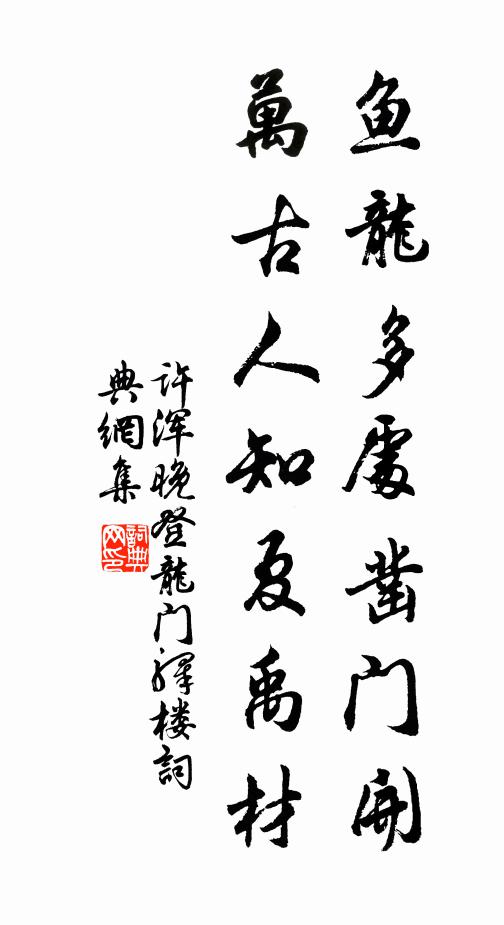 鱼龍多處凿门開
萬古人知夏禹材
许浑晚登龍门驿楼詞
典網集
詞典网印